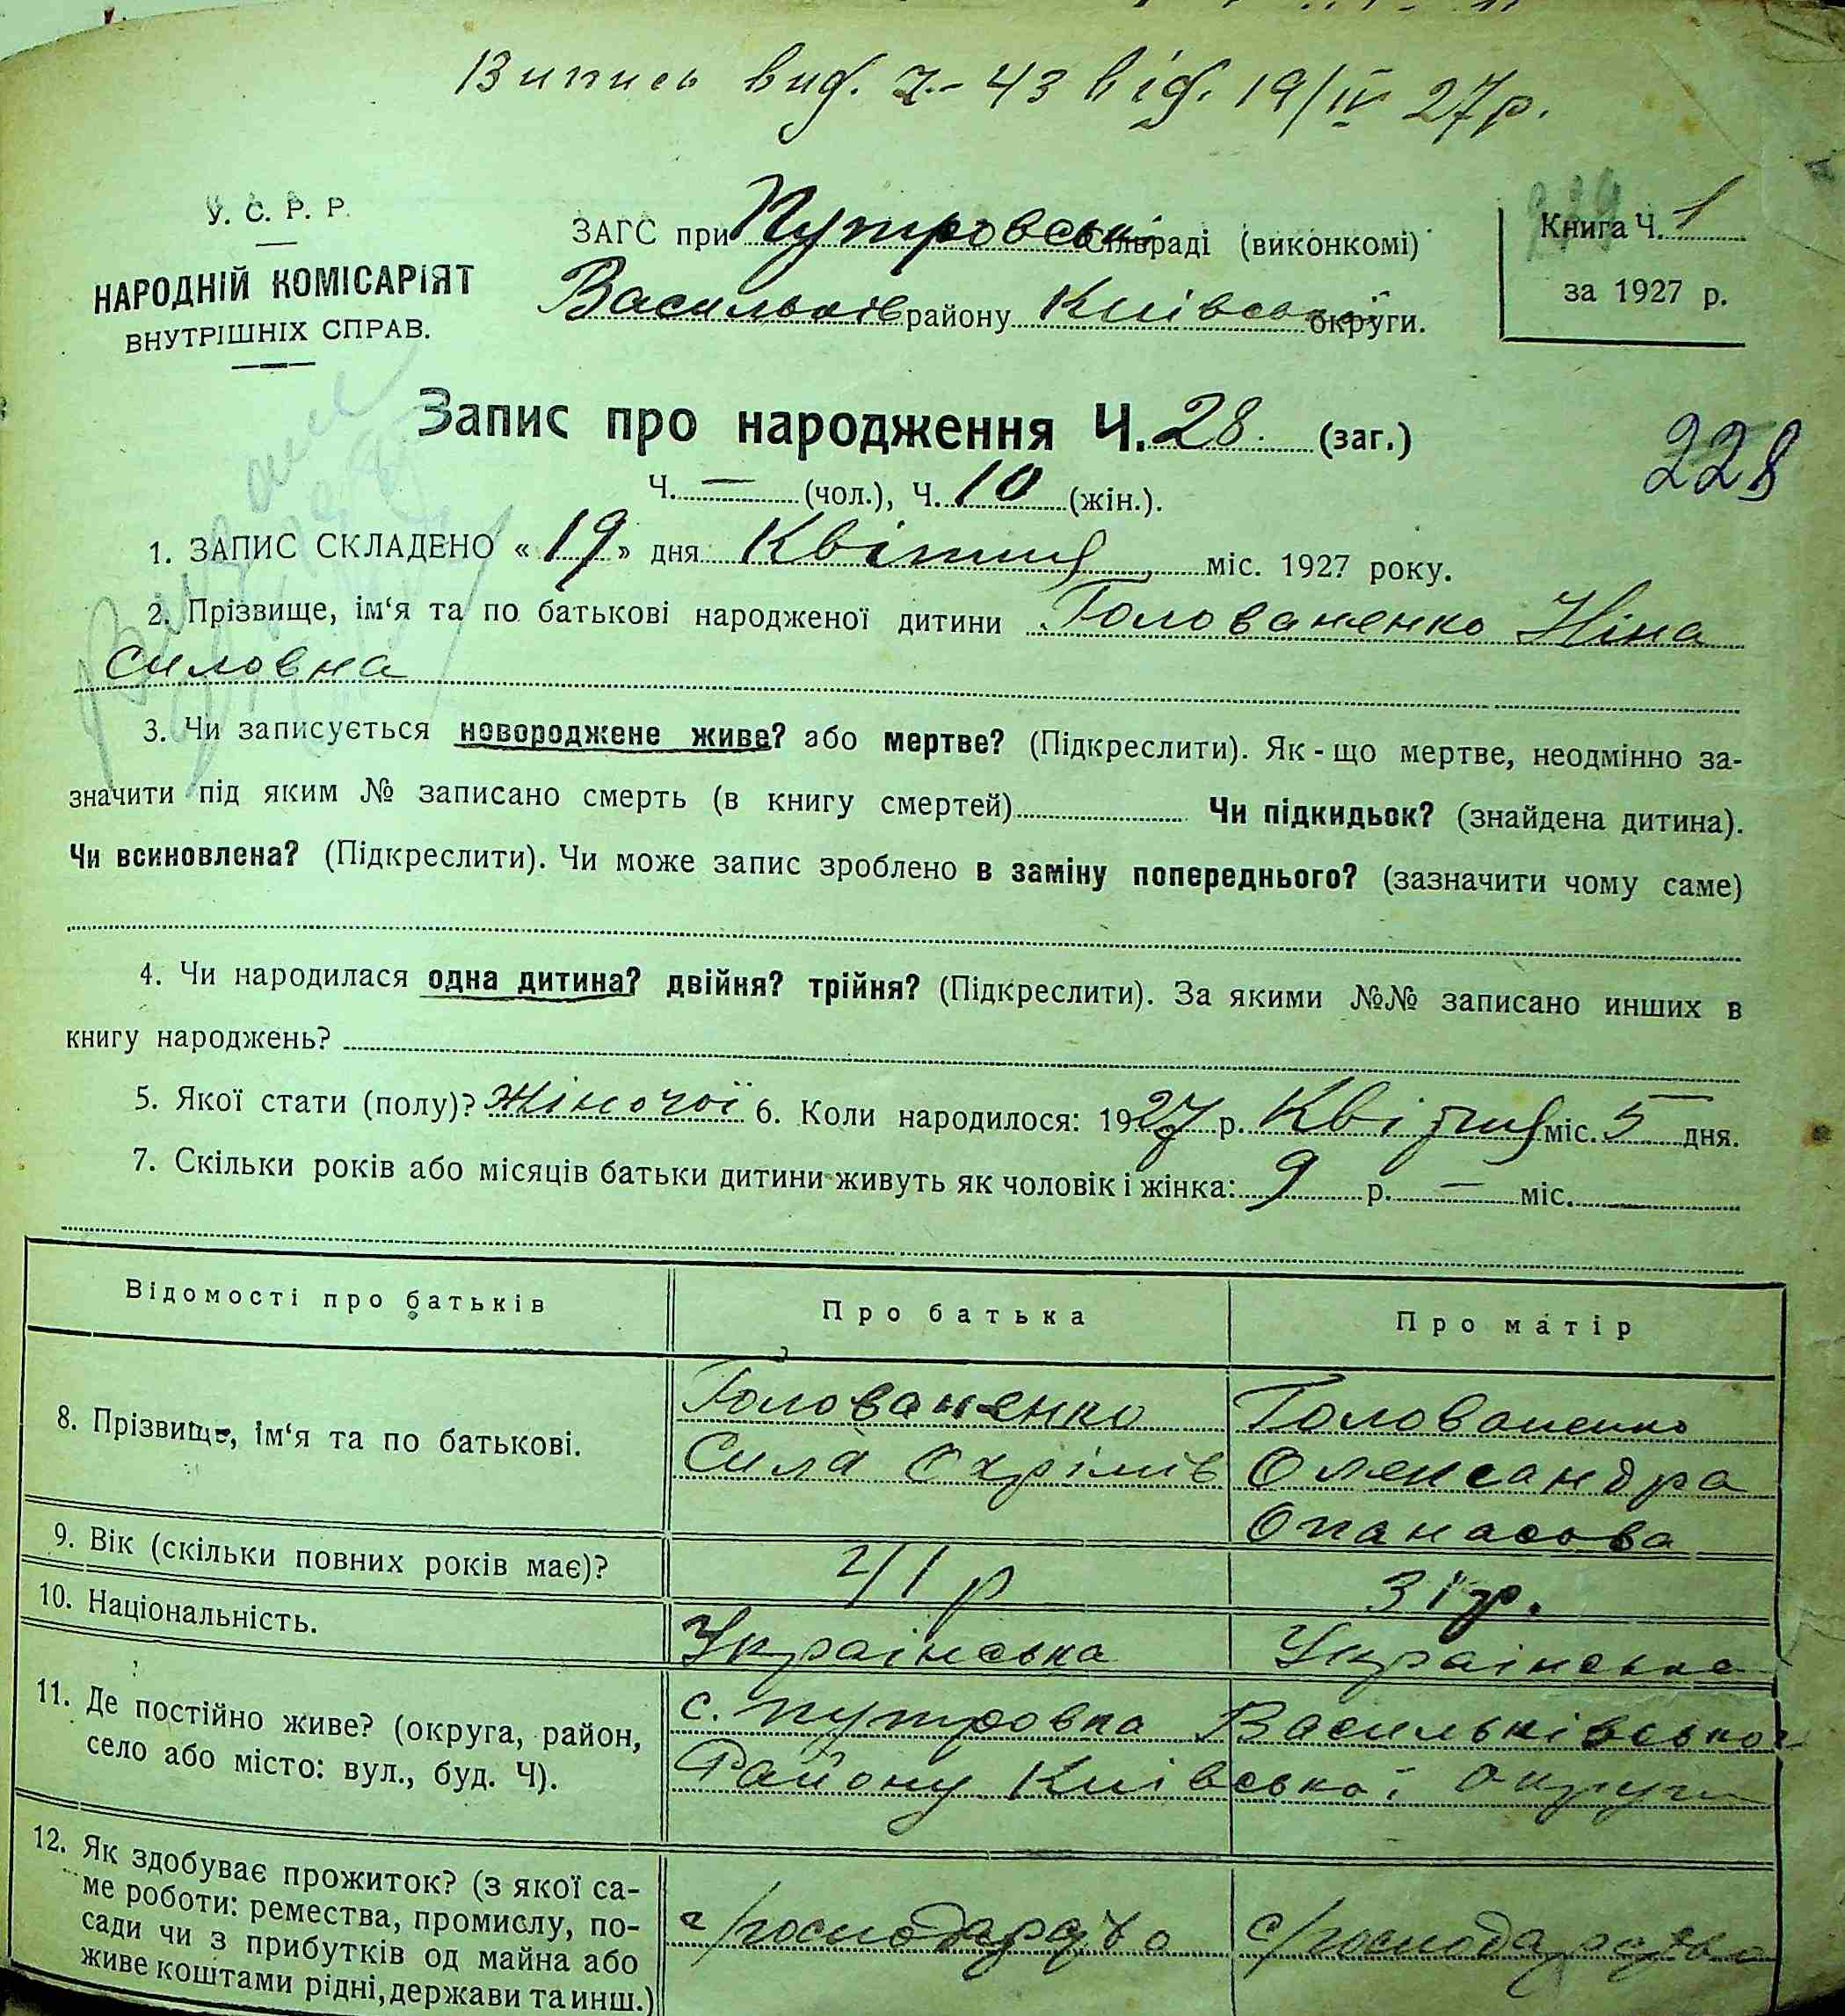 Випись вид. Ч-43 від. 19/IV 27р.
У. С. Р. Р.
НАРОДНІЙ КОМІСАРІЯТ
ВНУТРІШНІХ СПРАВ.
ЗАГС при Путровській Сільраді (виконкомі)
Васильків району Київської округи.
Книга Ч. 1
за 1927 р.
Запис про народження Ч. 28 (заг.)
228
Ч. — (чол.), Ч. 10 (жін.).
1. ЗАПИС СКЛАДЕНО « 19 » дня Квітня міс. 1927 року.
2. Прізвище, ім‘я та по батькові народженої дитини Голованенко Ніна
Силовна
3. Чи записується новороджене живе? або мертве? (Підкреслити). Як - що мертве, неодмінно за-
значити під яким № записано смерть (в книгу смертей) Чи підкидьок? (знайдена дитина).
Чи всиновлена? (Підкреслити). Чи може запис зроблено в заміну попереднього? (зазначити чому саме)
4. Чи народилася одна дитина? двійня? трійня? (Підкреслити). За якими №№ записано инших в
книгу народжень?
5. Якої стати (полу)? Жіночої 6. Коли народилося: 1927 р. Квітня міс. 5 дня.
7. Скільки років або місяців батьки дитини живуть як чоловік і жінка: 9 р. — міс.
Відомості про батьків Про батька Про матір
8. Прізвище, ім‘я та по батькові. Голованенко Голованенко
Сила Охрімів Олександра
Опанасова
9. Вік (скільки повних років має)? 41 р 31 р.
10. Національність. Українська Українська
11. Де постійно живе? (округа, район,
село або місто: вул., буд. Ч).
с. Путровка Васильківської
Району Київської Округи
12. Як здобуває прожиток? (з якої са-
ме роботи: ремества, промислу, по-
сади чи з прибутків од майна або
живе коштами рідні, держави та инш.)
с/господарство с/господарство